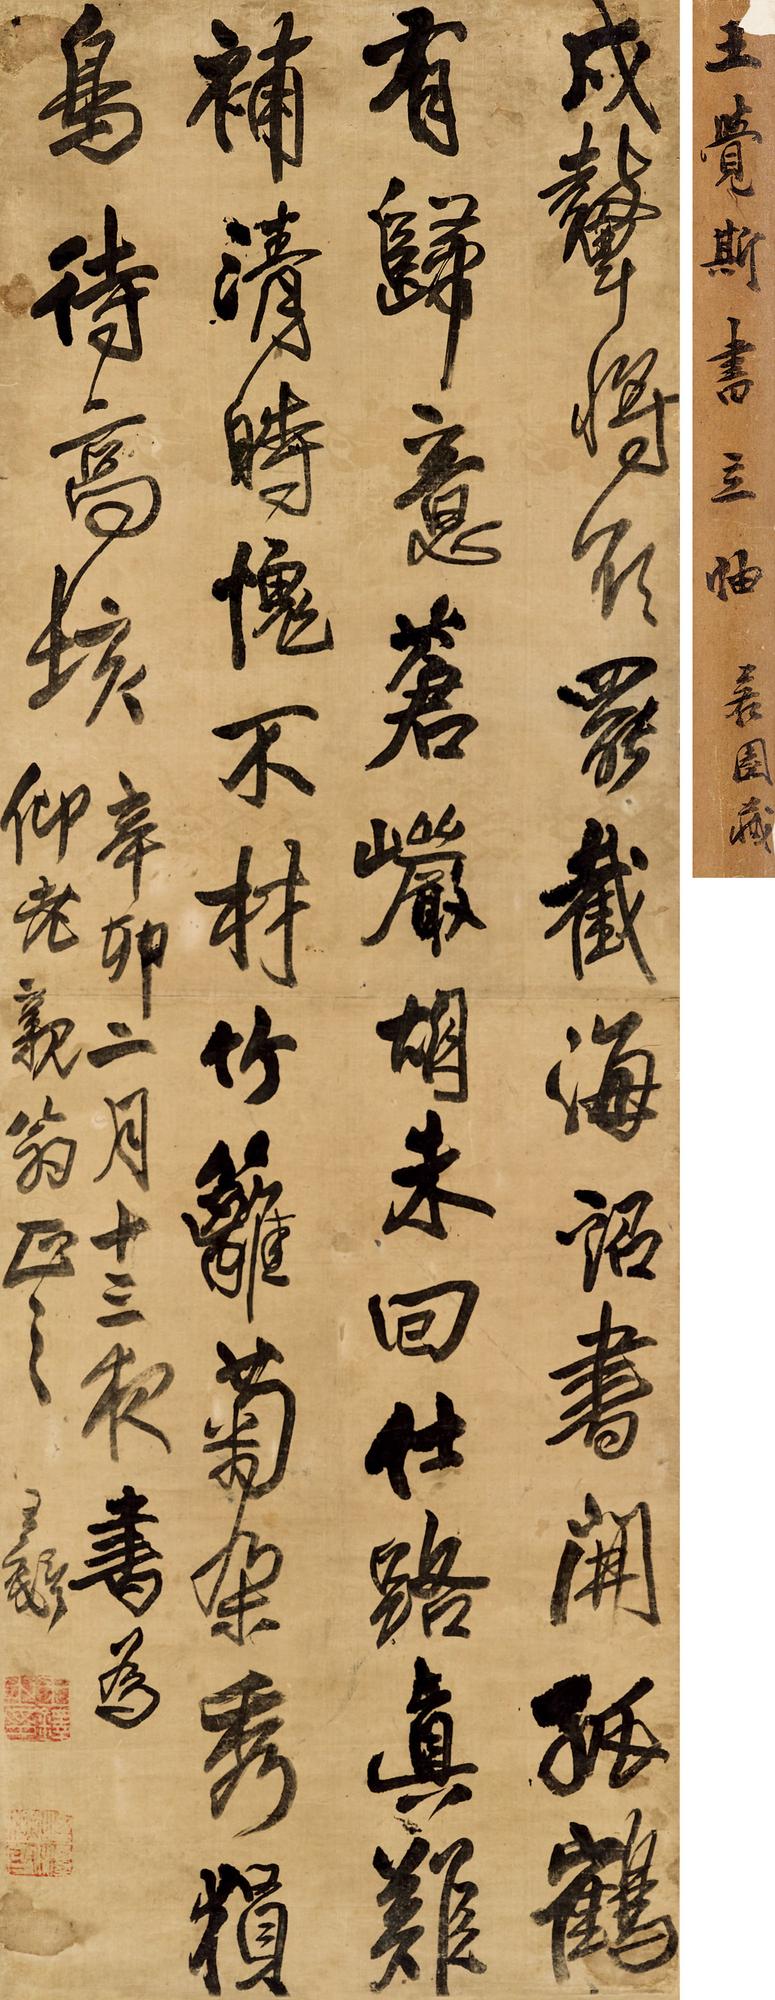 王覺斯書立軸 園藏
戍鼙將欲罷截海詔書開孤鶴
有歸意蒼巖胡未回仕路真難
補清時愧不材竹籬菊朵秀
鳥待高垓 辛卯二月十三夜書為
仰老親翁正之 王鐸